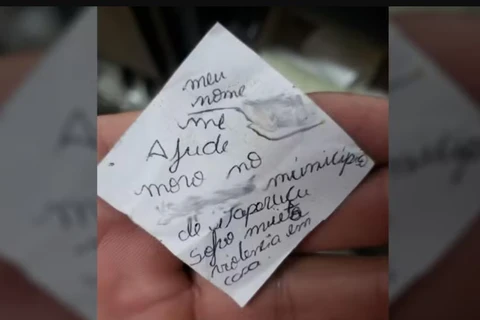 meu
nome
me
Ajude
moro no
município
de Itaperuçu
Sofro muita
violencia em
casa